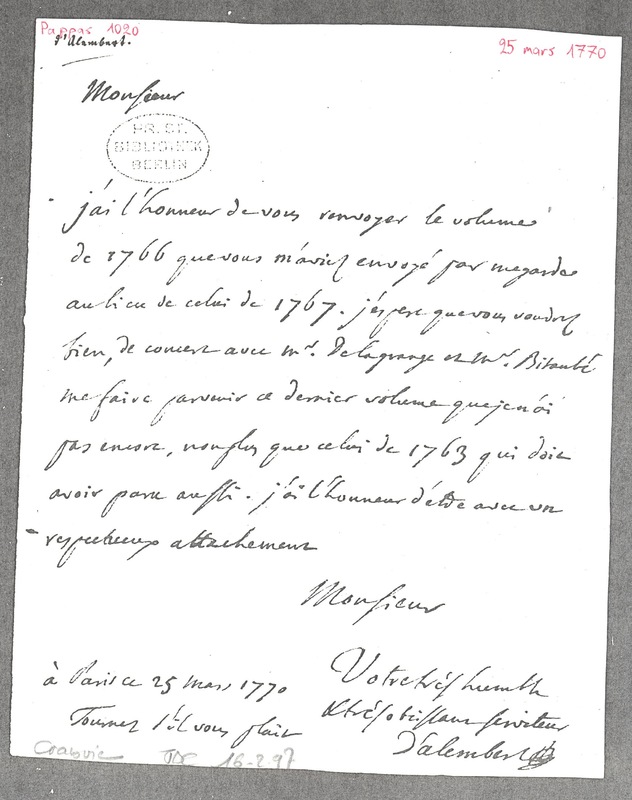 Pappas 1020
d'Alembert.
25 mars 1770
Monsieur
PR. ST.
BIBLIOTHEK
BERLIN
j'ai l'honneur de vous renvoyer le volume
de 1766 que vous m'aviez envoyé par megarde
au lieu de celui de 1767. j'espere que vous voudrez
bien, de concert avec mr. Delagrange et Mr. Bitaubé
me faire parvenir ce dernier volume que je n'ai
pas encore, non plus que celui de 1763 qui doit
avoir paru aussi. j'ai l'honneur d'etre avec un
respectueux attachement
Monsieur
à Paris ce 25 mars 1770
Votre très humble
et très obeissant serviteur
D'alembert
Tournez s'il vous plait
16-2-97